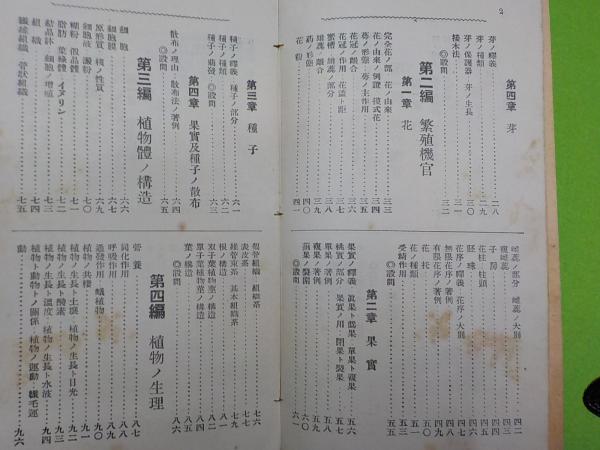 2
第四章 芽
芽ノ釋義
芽ノ種類 二八
芽ノ保護器 芽ノ生長 三〇
接木法
◎設問 三二
第二編 繁殖機官
第一章 花
完全花ノ部 花ノ由來 三三
花ノ由來ノ例證 摸式花 三四
萼ノ形狀 萼ノ主作用 三五
花冠ノ離合
花冠ノ作用 花蓋ト距
蜜槽 雄蕊ノ部分
雄蕊ノ離合 三九
葯ノ形態 四〇
花粉 四一
雌蕊ノ部分 雌蕊ノ大別 四二
雌蕊
子房 四四
花柱 柱頭
胚珠
花序ノ釋義 花序ノ大別
無限花序ノ著例
有限花序ノ著例
花托
花ノ種類
受精作用 五五
◎設問 五五
第二章 果實
果實ノ釋義 眞果ト假果 單果ト複果 五六
桃實ノ部分 果實ノ用 閉果ト裂果
單果ノ著例
複果ノ著例 五九
蒴果ノ裂開
◎設問 六一
第三章 種子
種子ノ釋義 種子ノ部分 六一
種子ノ種類
種子ノ萌發 ◎設問
第四章 果實及種子ノ散布
散布ノ理由 散布法ノ著例 六四
◎設問 六五
第三編 植物體ノ構造
細胞 六六
細胞膜 六七
原形質 核ノ性質
細胞液 澱粉 七〇
糊粉 假晶體 七一
脂肪 葉綠體 イヌリン 七二
結晶体 細胞ノ增殖 七三
組織 七四
纖維組織 管狀組織 七五
組織系 七六
表皮系 七七
維管束系 基本組織系 七九
根ノ構造
双子葉植物莖ノ構造 八二
單子葉植物莖ノ構造 八四
葉ノ構造 八五
◎設問 八六
第四編 植物ノ生理
營養 八七
同化作用 八八
呼吸作用 八九
通發作用 蟻植物 九〇
植物ノ共棲 九一
植物ノ生長ト土壤 植物ノ生長ト日光 九二
植物ノ生長ト酸素 九三
植物ノ生長ト溫度 植物ノ生長ト水液 九四
植物ト動物トノ關係 植物ノ運動 纎毛運
動 九六